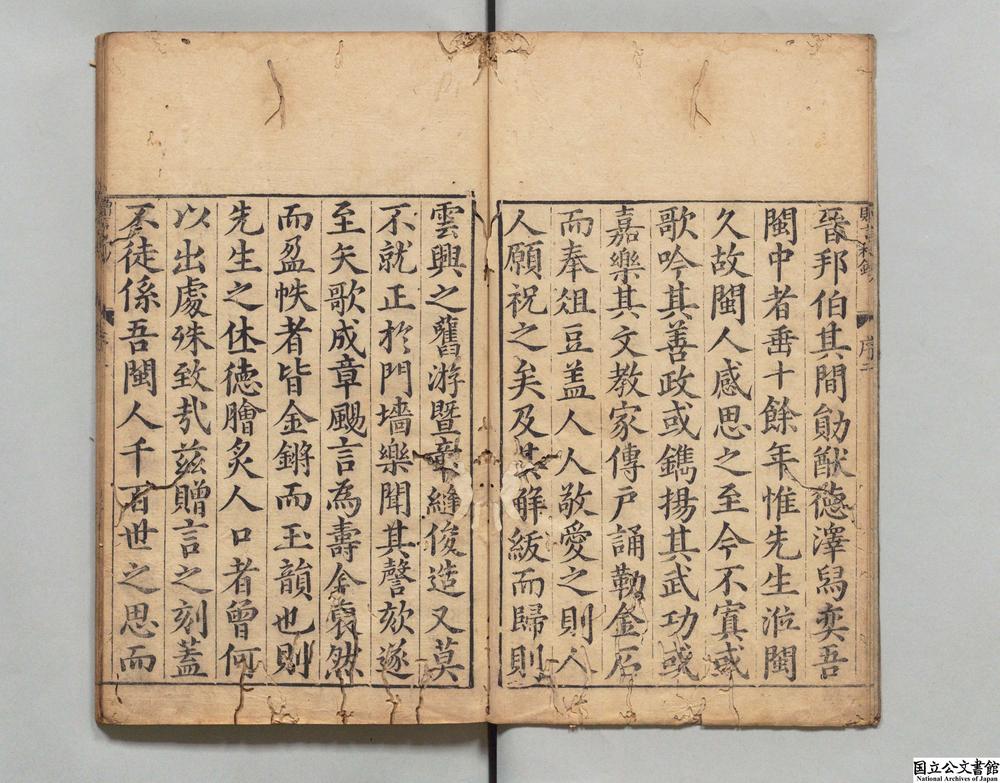 晉邦伯其間勛猷德澤舄奕吾
閩中者垂十餘年惟先生涖閩
久故閩人感思之至今不寘或
歌吟其善政或鐫揚其武功或
嘉樂其文教家傳戶誦勒金石
而奉俎豆盖人人敬愛之則人
人願祝之矣及其解紱而歸則
雲興之舊游暨章縫俊造又莫
不就正於門墻樂聞其謦欬遂
至矢歌成章颺言為壽僉裒然
而盈帙者皆金鏘而玉韻也則
先生之休德膾炙人口者曾何
以出處殊致㢤兹贈言之刻蓋
不徒係吾閩人千百世之思而
序二
国立公文書館
National Archives of Japan